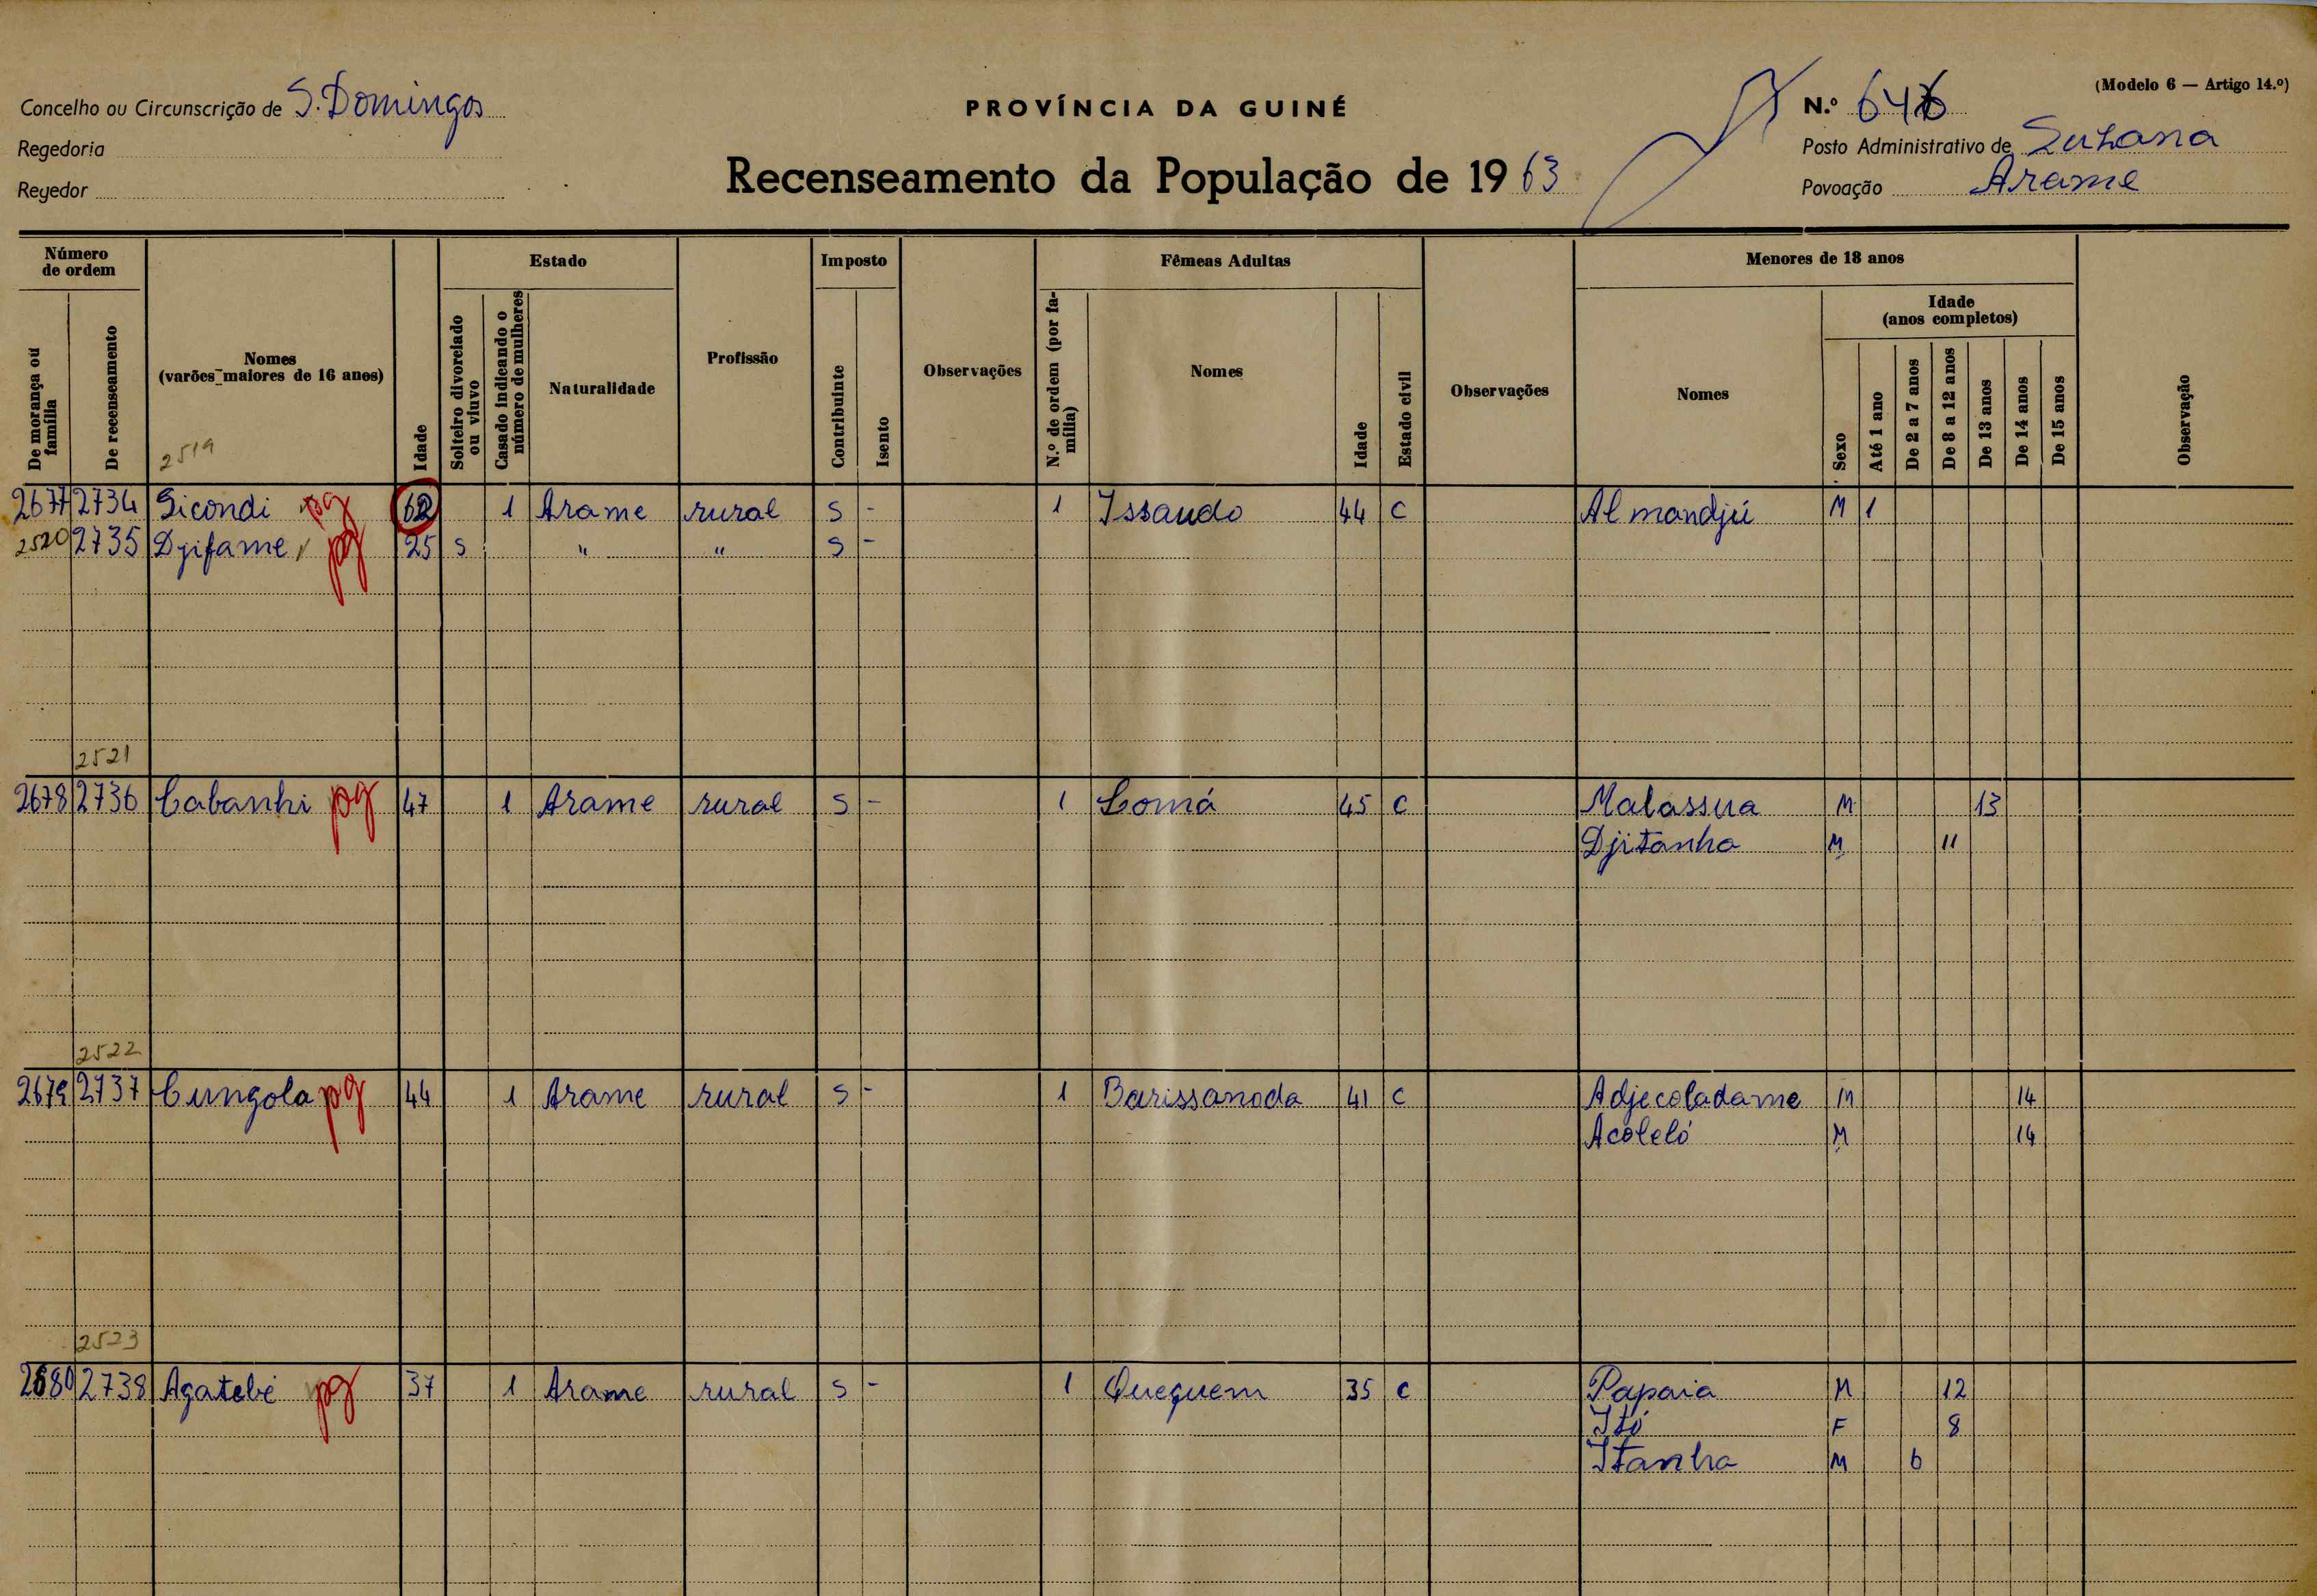 (Modelo 6 — Artigo 14.º)
Concelho ou Circunscrição de S. Domingos
PROVÍNCIA DA GUINÉ
N.º
Regedoria
Posto Administrativo de Suzana
Recenseamento da População de 1963
Regedor
Povoação Arame
Número de ordem
Estado
Imposto
Fêmeas Adultas
Menores de 18 anos
De morança ou família
De recenseamento
Nomes (varões maiores de 16 anos)
2519
Idade
Solteiro divorciado ou viuvo
Casado indicando o número de mulheres
Naturalidade
Profissão
Contribuinte
Isento
Observações
N.º de ordem (por família)
Nomes
Idade
Estado civil
Observações
Nomes
Sexo
Idade (anos completos)
Até 1 ano
De 2 a 7 anos
De 8 a 12 anos
De 13 anos
De 14 anos
De 15 anos
Observação
2677 2734 Sicondi pg 62 1 Arame rural S - 1 Issaudo 44 C Almandjú M 1
2520 2735 Djifame pg 25 S " " S -
2521
2678 2736 Cabanhi pg 47 1 Arame rural S - 1 Lomá 45 C Malassua M 13
Djitanha M 11
2522
2679 2737 Cungola pg 44 1 Arame rural S - 1 Barissanoda 41 C Adjecoladame M 14
Acoleló M 14
2523
2680 2738 Agatebé pg 37 1 Arame rural S - 1 Queguem 35 C Papaia M 12
Itó F 8
Itanha M 6